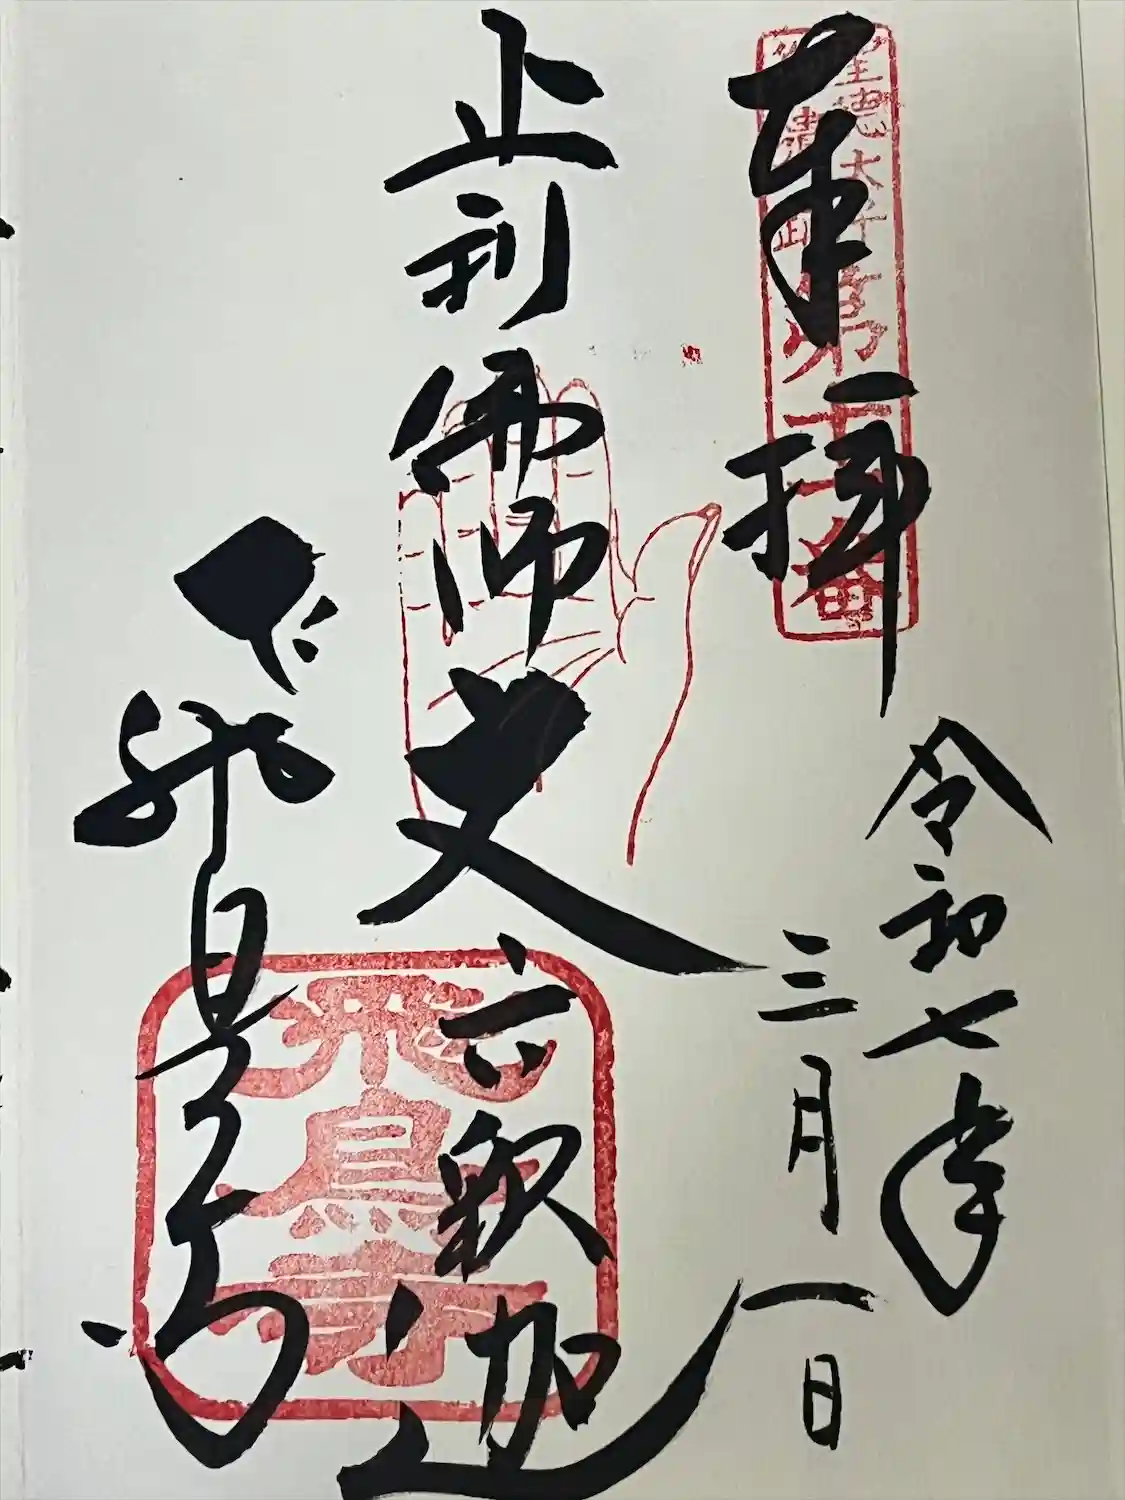 奉拝
聖徳太子
第十一番
令和七年
三月一日
止利佛師
丈六釈迦
飛鳥寺
飛鳥寺